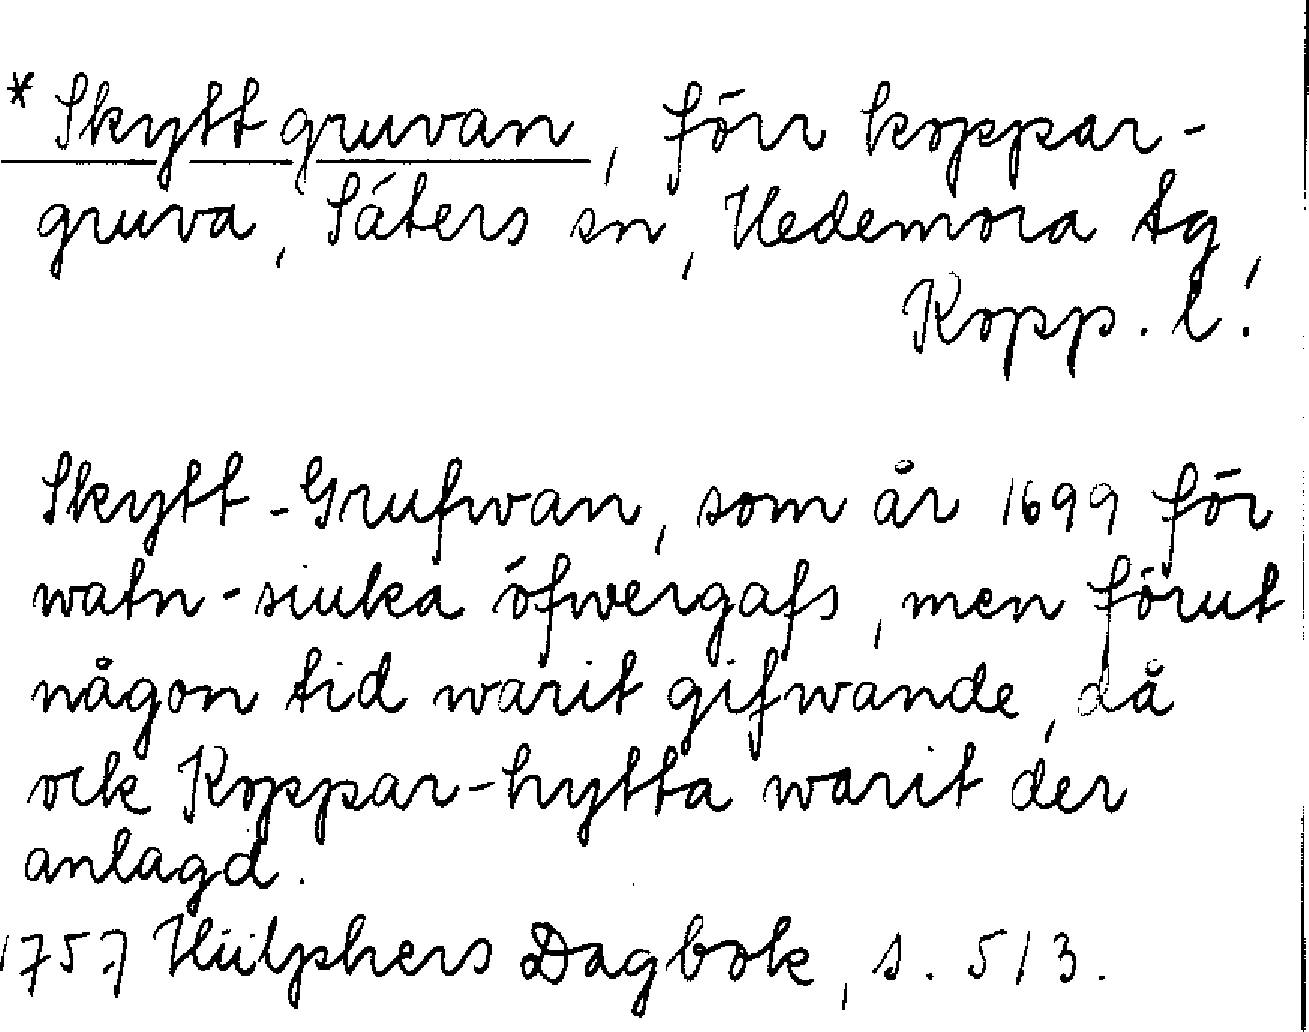 *Skyttgruvan, förr koppar-
gruva, Säters sn, Hedemora tg,
Kopp. l.
Skytt-Grufwan, som år 1699 för
watn-siuka öfwergafs, men förut
någon tid warit gifwande, då
ock Koppar-hytta warit der
anlagd.
1757 Hülphers Dagbok, s. 513.